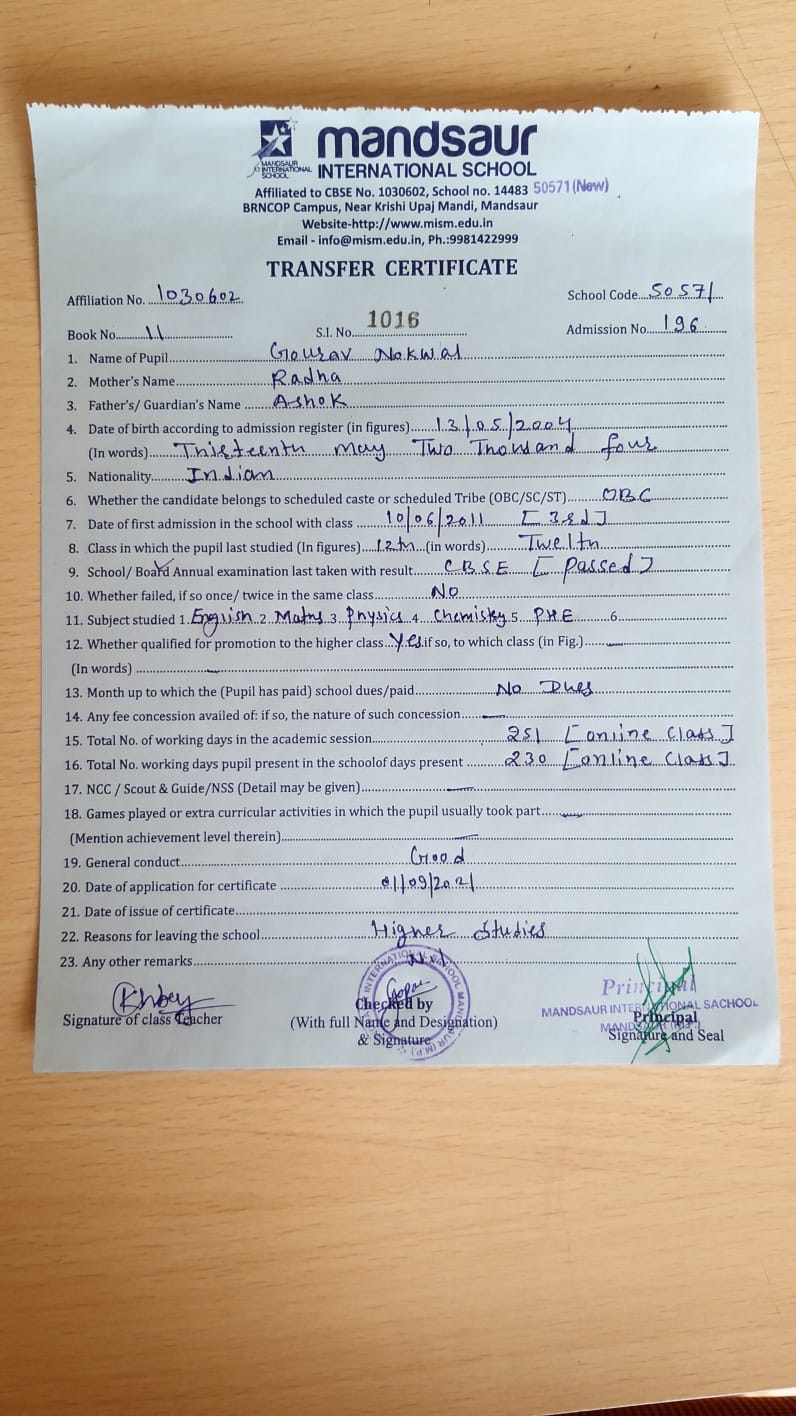 mandsaur
MANDSAUR INTERNATIONAL SCHOOL
INTERNATIONAL SCHOOL
Affiliated to CBSE No. 1030602, School no. 14483 50571(New)
BRNCOP Campus, Near Krishi Upaj Mandi, Mandsaur
Website-http://www.mism.edu.in
Email - info@mism.edu.in, Ph.:9981422999
TRANSFER CERTIFICATE
Affiliation No. 1030602 School Code 50571
Book No. 11 S.I. No. 1016 Admission No. 196
1. Name of Pupil Gourav Nakwal
2. Mother's Name Radha
3. Father's/ Guardian's Name Ashok
4. Date of birth according to admission register (in figures) 13/05/2004
(In words) Thirteenth may Two Thousand four
5. Nationality Indian
6. Whether the candidate belongs to scheduled caste or scheduled Tribe (OBC/SC/ST) OBC
7. Date of first admission in the school with class 10/06/2011 [3rd]
8. Class in which the pupil last studied (In figures) 12th (in words) Twelth
9. School/ Board Annual examination last taken with result CBSE [Passed]
10. Whether failed, if so once/ twice in the same class No
11. Subject studied 1. English 2 Maths 3 Physics 4 Chemistry 5 PHE 6
12. Whether qualified for promotion to the higher class Yes if so, to which class (in Fig.) —
(In words)
13. Month up to which the (Pupil has paid) school dues/paid No Dues
14. Any fee concession availed of: if so, the nature of such concession —
15. Total No. of working days in the academic session 251 [online class]
16. Total No. working days pupil present in the schoolof days present 230 [online class]
17. NCC / Scout & Guide/NSS (Detail may be given) —
18. Games played or extra curricular activities in which the pupil usually took part —
(Mention achievement level therein) —
19. General conduct Good
20. Date of application for certificate 01/09/2021
21. Date of issue of certificate
22. Reasons for leaving the school Higher Studies
23. Any other remarks Nil
Signature of class Teacher
Checked by
(With full Name and Designation)
& Signature
Principal
MANDSAUR INTERNATIONAL SACHOOL
Principal
Signature and Seal